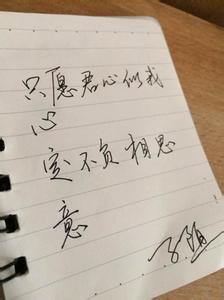 只愿君心似我
心
定不负相思
意